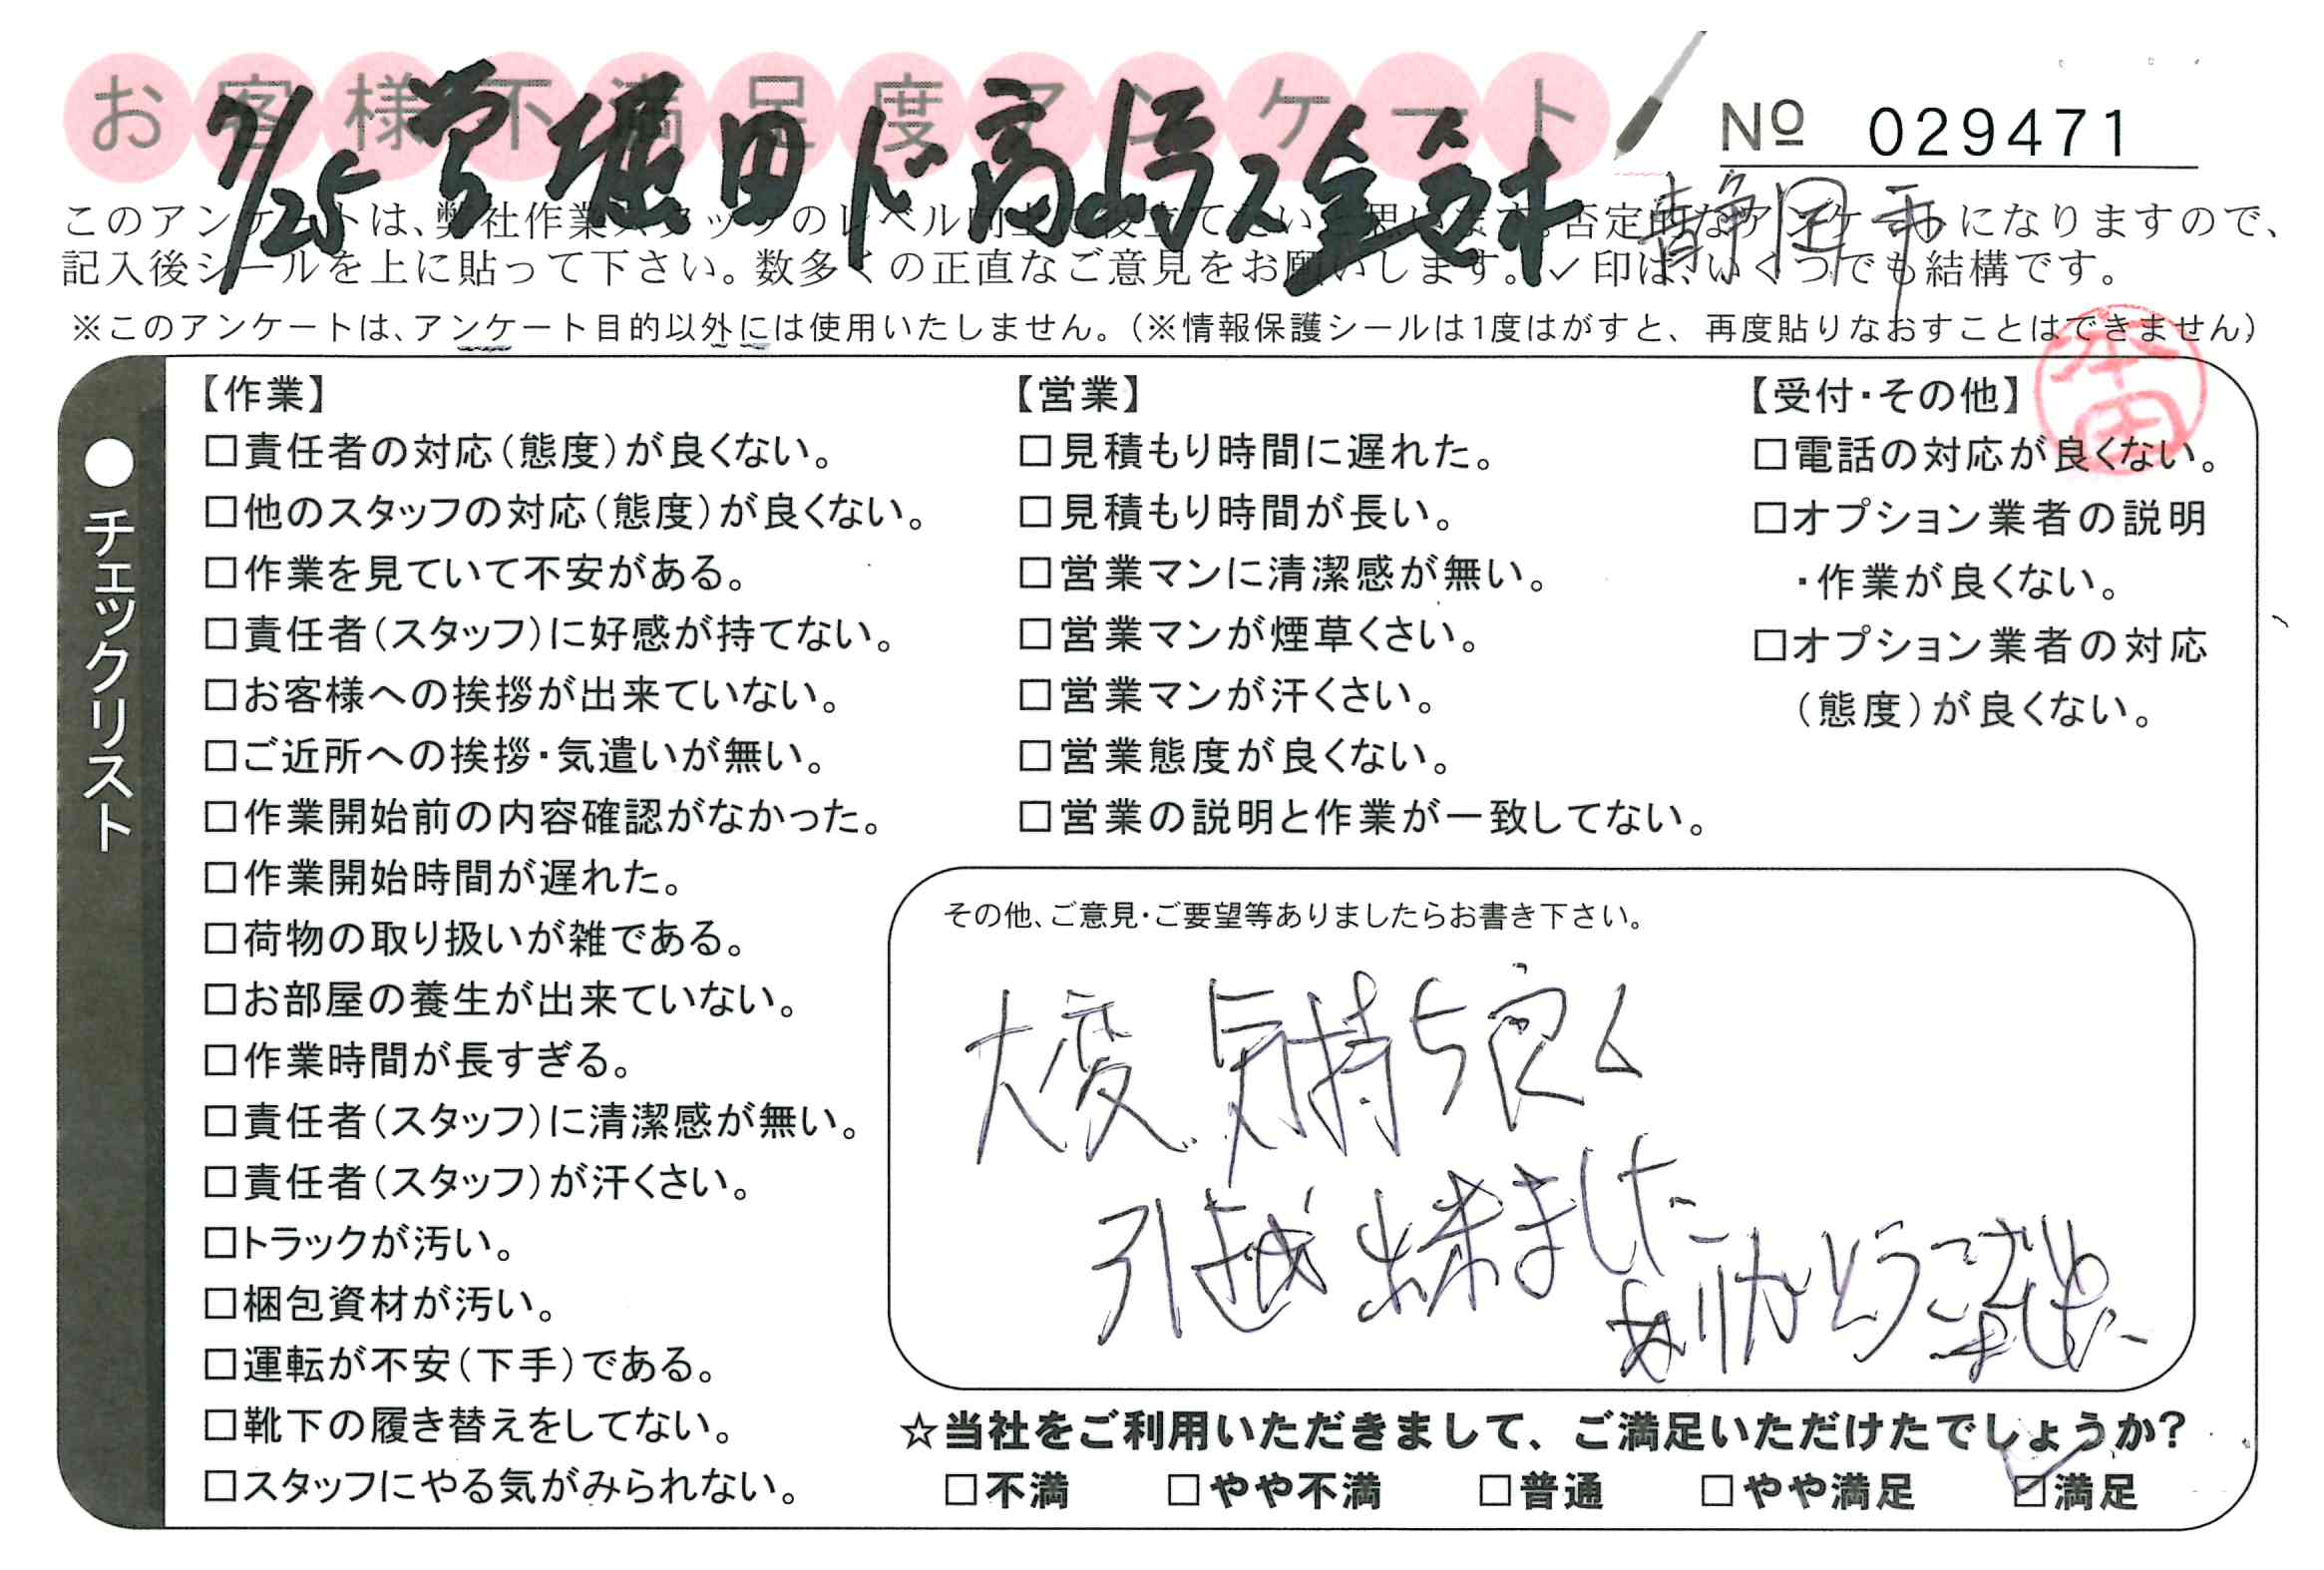 お客様不満足度アンケート
№ 029471
7/25 営 堀田 ド 高嶋 ス 金 鈴木
静岡市
このアンケートは、弊社作業スタッフのレベル向上に役立てたいと思います。否定的なアンケートになりますので、
記入後シールを上に貼って下さい。数多くの正直なご意見をお願いします。✓印は、いくつでも結構です。
※このアンケートは、アンケート目的以外には使用いたしません。(※情報保護シールは1度はがすと、再度貼りなおすことはできません)
●チェックリスト
【作業】
□責任者の対応(態度)が良くない。
□他のスタッフの対応(態度)が良くない。
□作業を見ていて不安がある。
□責任者(スタッフ)に好感が持てない。
□お客様への挨拶が出来ていない。
□ご近所への挨拶・気遣いが無い。
□作業開始前の内容確認がなかった。
□作業開始時間が遅れた。
□荷物の取り扱いが雑である。
□お部屋の養生が出来ていない。
□作業時間が長すぎる。
□責任者(スタッフ)に清潔感が無い。
□責任者(スタッフ)が汗くさい。
□トラックが汚い。
□梱包資材が汚い。
□運転が不安(下手)である。
□靴下の履き替えをしてない。
□スタッフにやる気がみられない。
【営業】
□見積もり時間に遅れた。
□見積もり時間が長い。
□営業マンに清潔感が無い。
□営業マンが煙草くさい。
□営業マンが汗くさい。
□営業態度が良くない。
□営業の説明と作業が一致してない。
【受付・その他】
□電話の対応が良くない。
□オプション業者の説明
・作業が良くない。
□オプション業者の対応
(態度)が良くない。
その他、ご意見・ご要望等ありましたらお書き下さい。
大変 気持ち良く
引越出来ました
ありがとうございました
☆当社をご利用いただきまして、ご満足いただけたでしょうか?
□不満 □やや不満 □普通 □やや満足 ☑満足